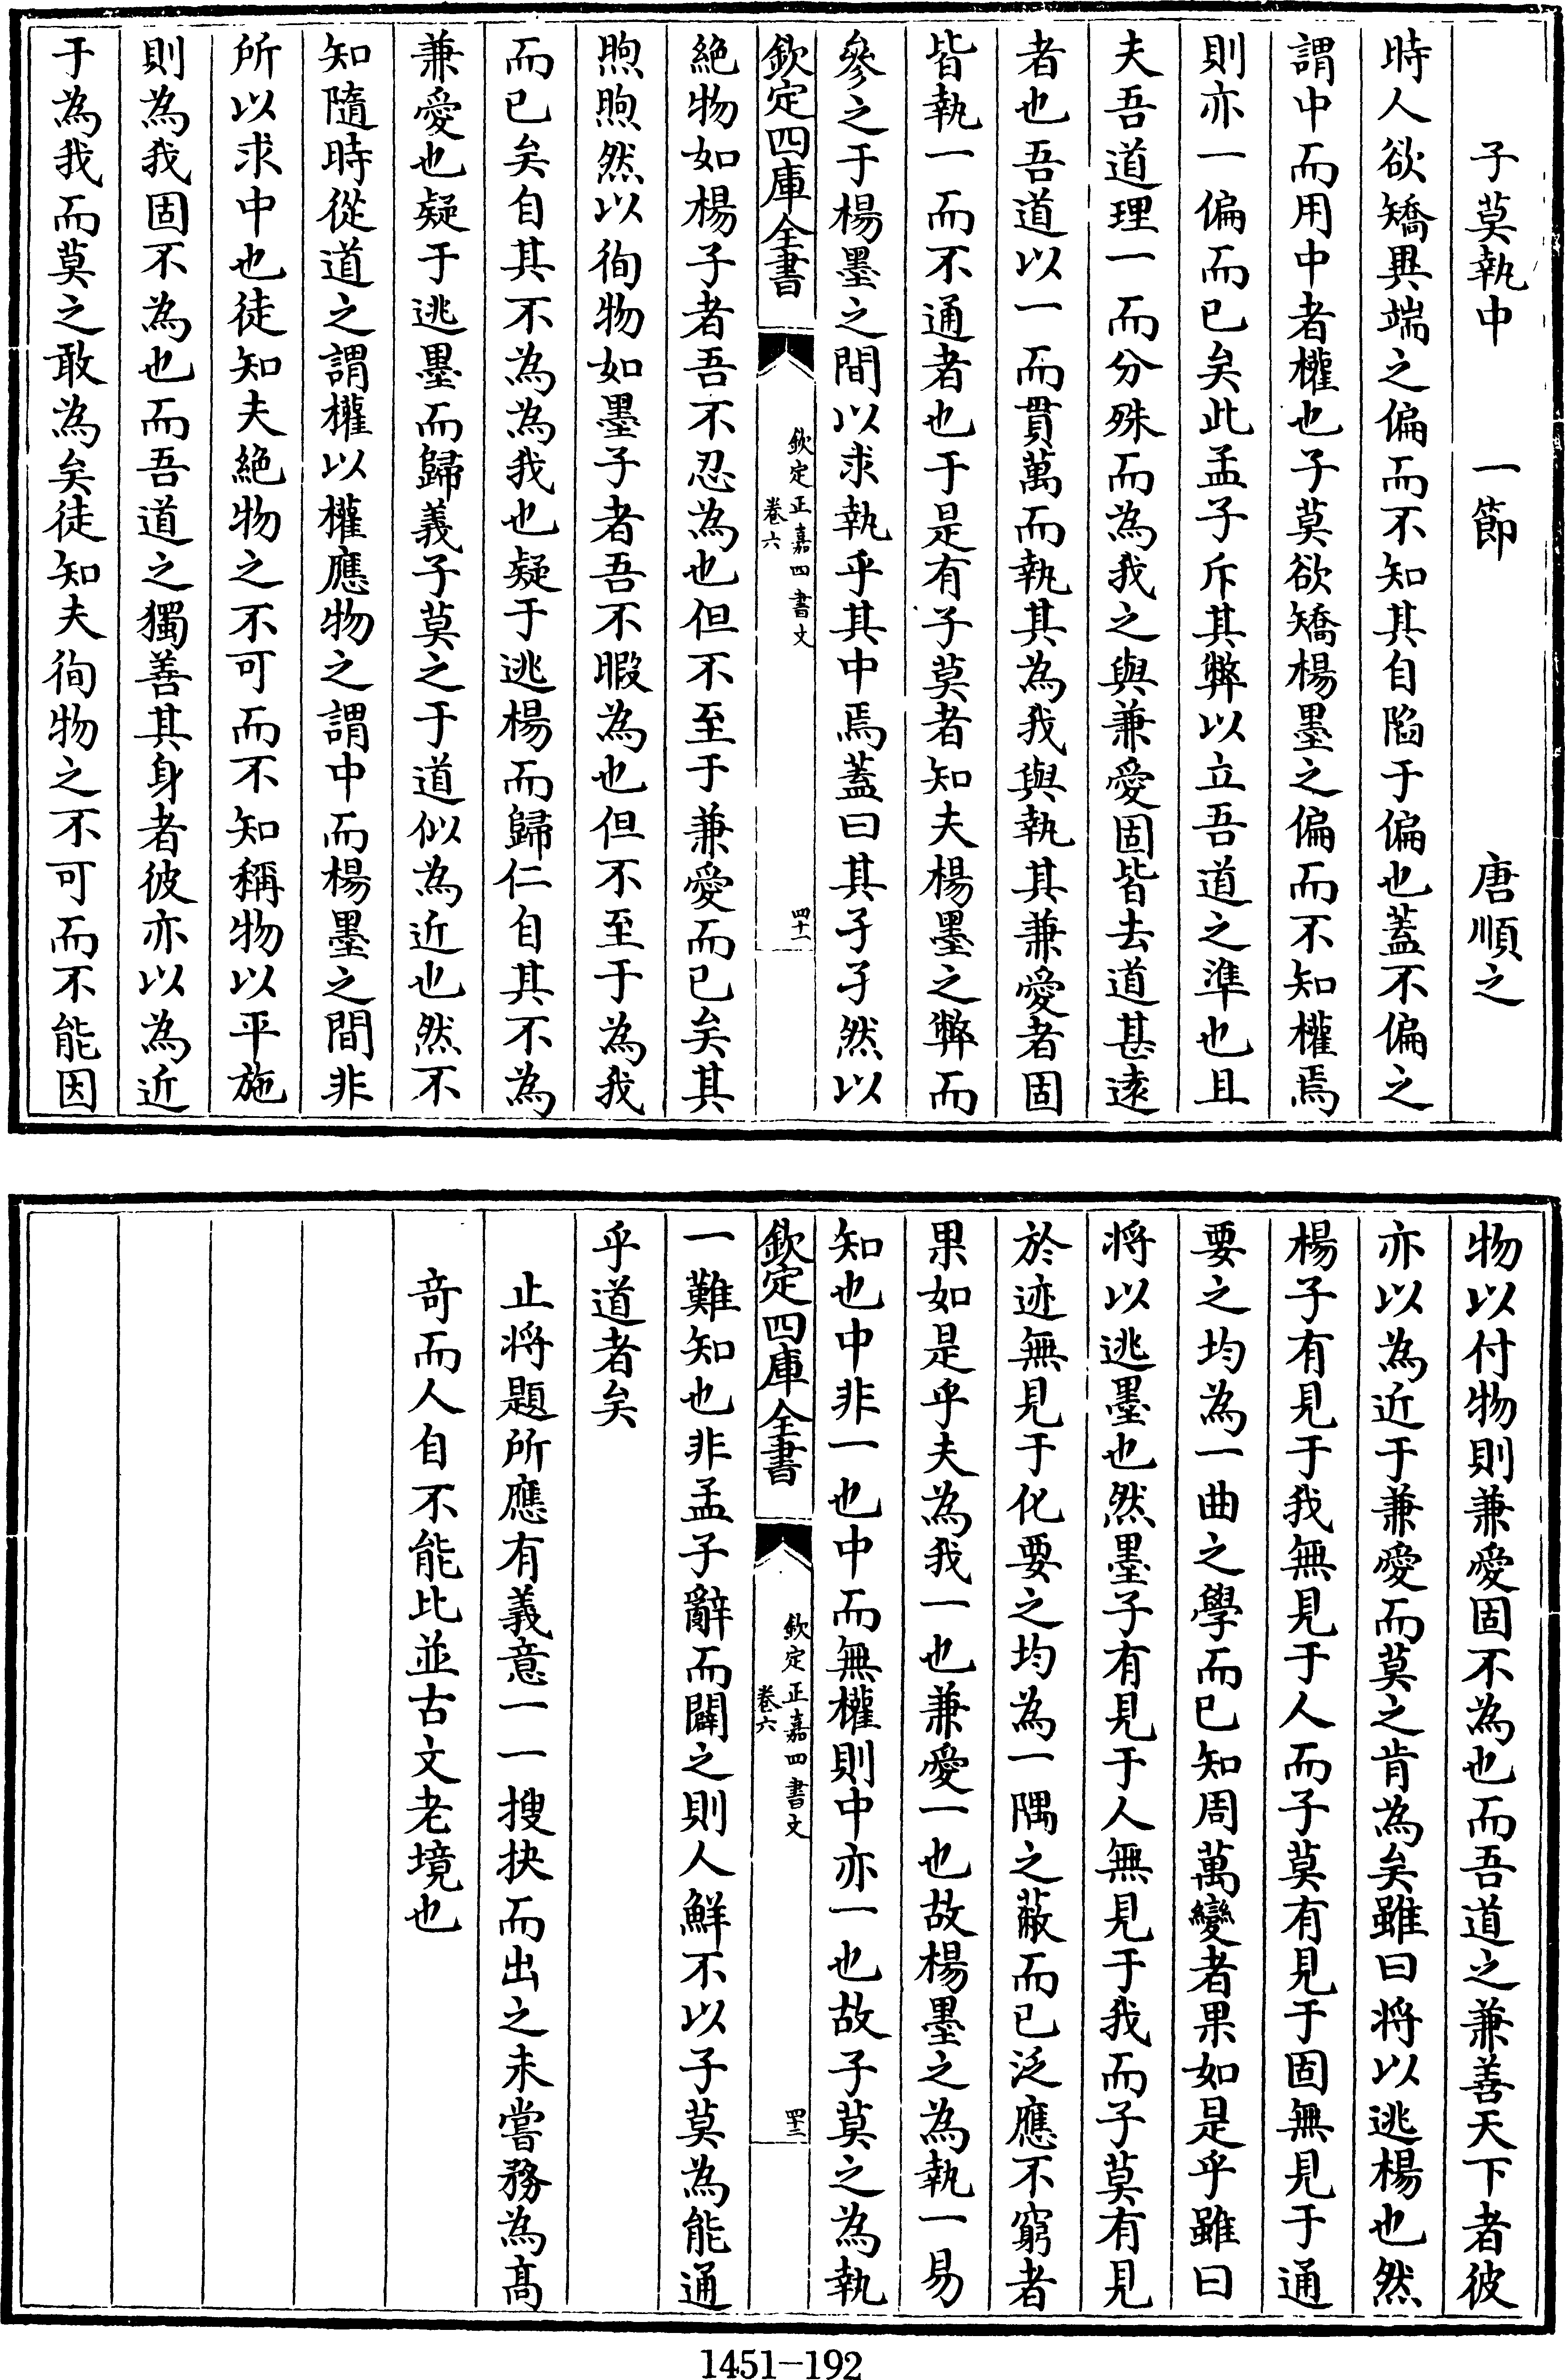 子莫執中　一節　唐順之
時人欲矯異端之偏而不知其自陷于偏也蓋不偏之
謂中而用中者權也子莫欲矯楊墨之偏而不知權焉
則亦一偏而已矣此孟子斥其弊以立吾道之準也且
夫吾道理一而分殊而為我之與兼愛固皆去道甚遠
者也吾道以一而貫萬而執其為我與執其兼愛者固
皆執一而不通者也于是有子莫者知夫楊墨之弊而
參之于楊墨之間以求執乎其中焉蓋曰其孑孑然以
欽定四庫全書
欽定正嘉四書文
卷六
四十一
絕物如楊子者吾不忍為也但不至于兼愛而已矣其
煦煦然以徇物如墨子者吾不暇為也但不至于為我
而已矣自其不為為我也疑于逃楊而歸仁自其不為
兼愛也疑于逃墨而歸義子莫之于道似為近也然不
知隨時從道之謂權以權應物之謂中而楊墨之間非
所以求中也徒知夫絕物之不可而不知稱物以平施
則為我固不為也而吾道之獨善其身者彼亦以為近
于為我而莫之敢為矣徒知夫徇物之不可而不能因
物以付物則兼愛固不為也而吾道之兼善天下者彼
亦以為近于兼愛而莫之肯為矣雖曰將以逃楊也然
楊子有見于我無見于人而子莫有見于固無見于通
要之均為一曲之學而已知周萬變者果如是乎雖曰
將以逃墨也然墨子有見于人無見于我而子莫有見
於迹無見于化要之均為一隅之蔽而已泛應不窮者
果如是乎夫為我一也兼愛一也故楊墨之為執一易
知也中非一也中而無權則中亦一也故子莫之為執
欽定四庫全書
欽定正嘉四書文
卷六
四十二
一難知也非孟子辭而闢之則人鮮不以子莫為能通
乎道者矣
止將題所應有義意一一搜抉而出之未嘗務為高
奇而人自不能比並古文老境也
1451-192